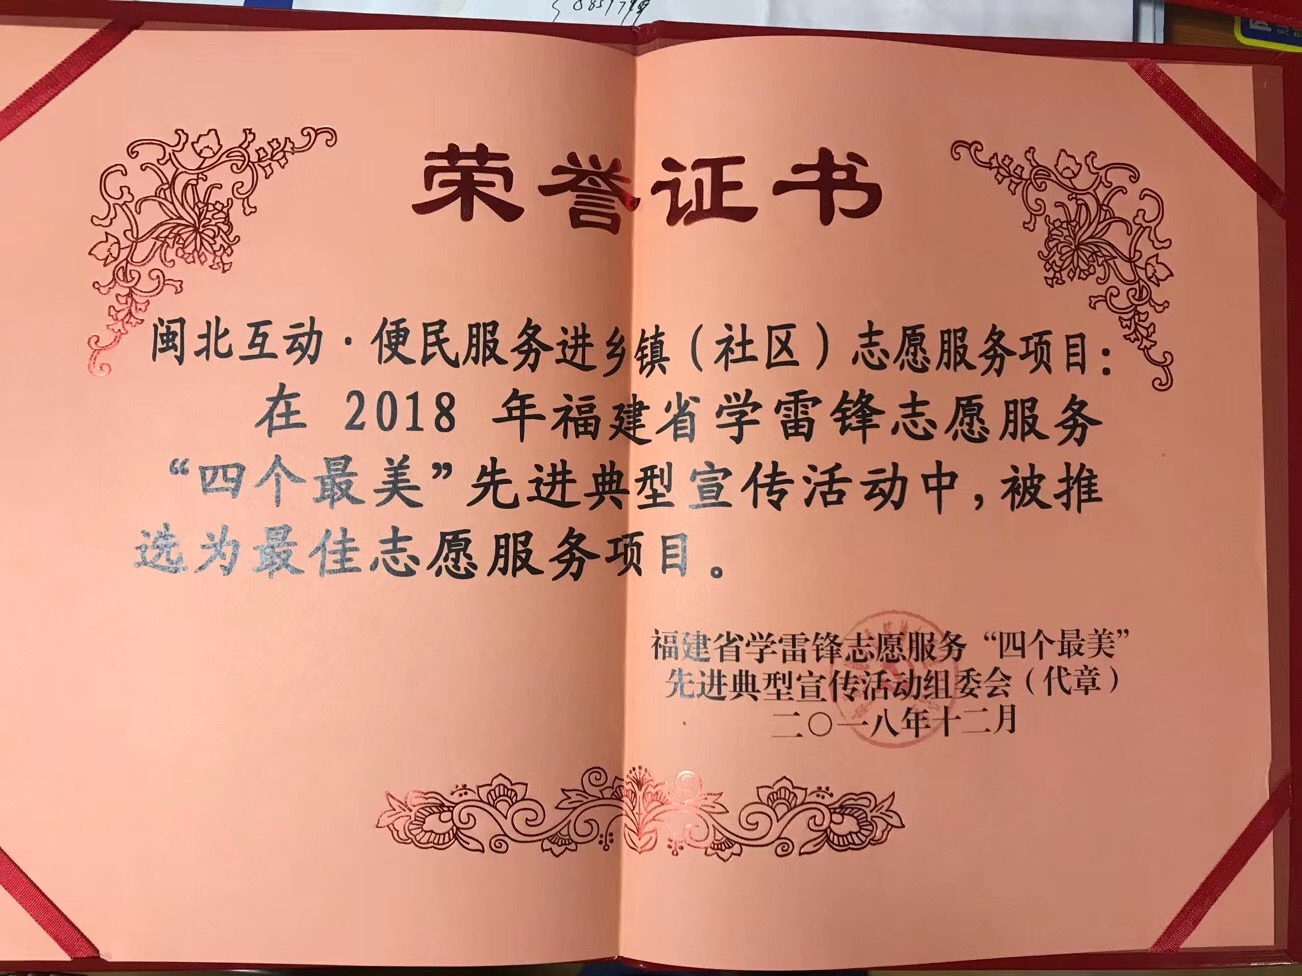 荣誉证书
闽北互动·便民服务进乡镇（社区）志愿服务项目：
在 2018 年福建省学雷锋志愿服务
“四个最美”先进典型宣传活动中，被推
选为最佳志愿服务项目。
福建省学雷锋志愿服务“四个最美”
先进典型宣传活动组委会（代章）
二〇一八年十二月